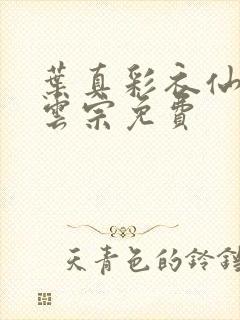 葉真彩衣仙
雲宗免費
天青色的鈴鐺